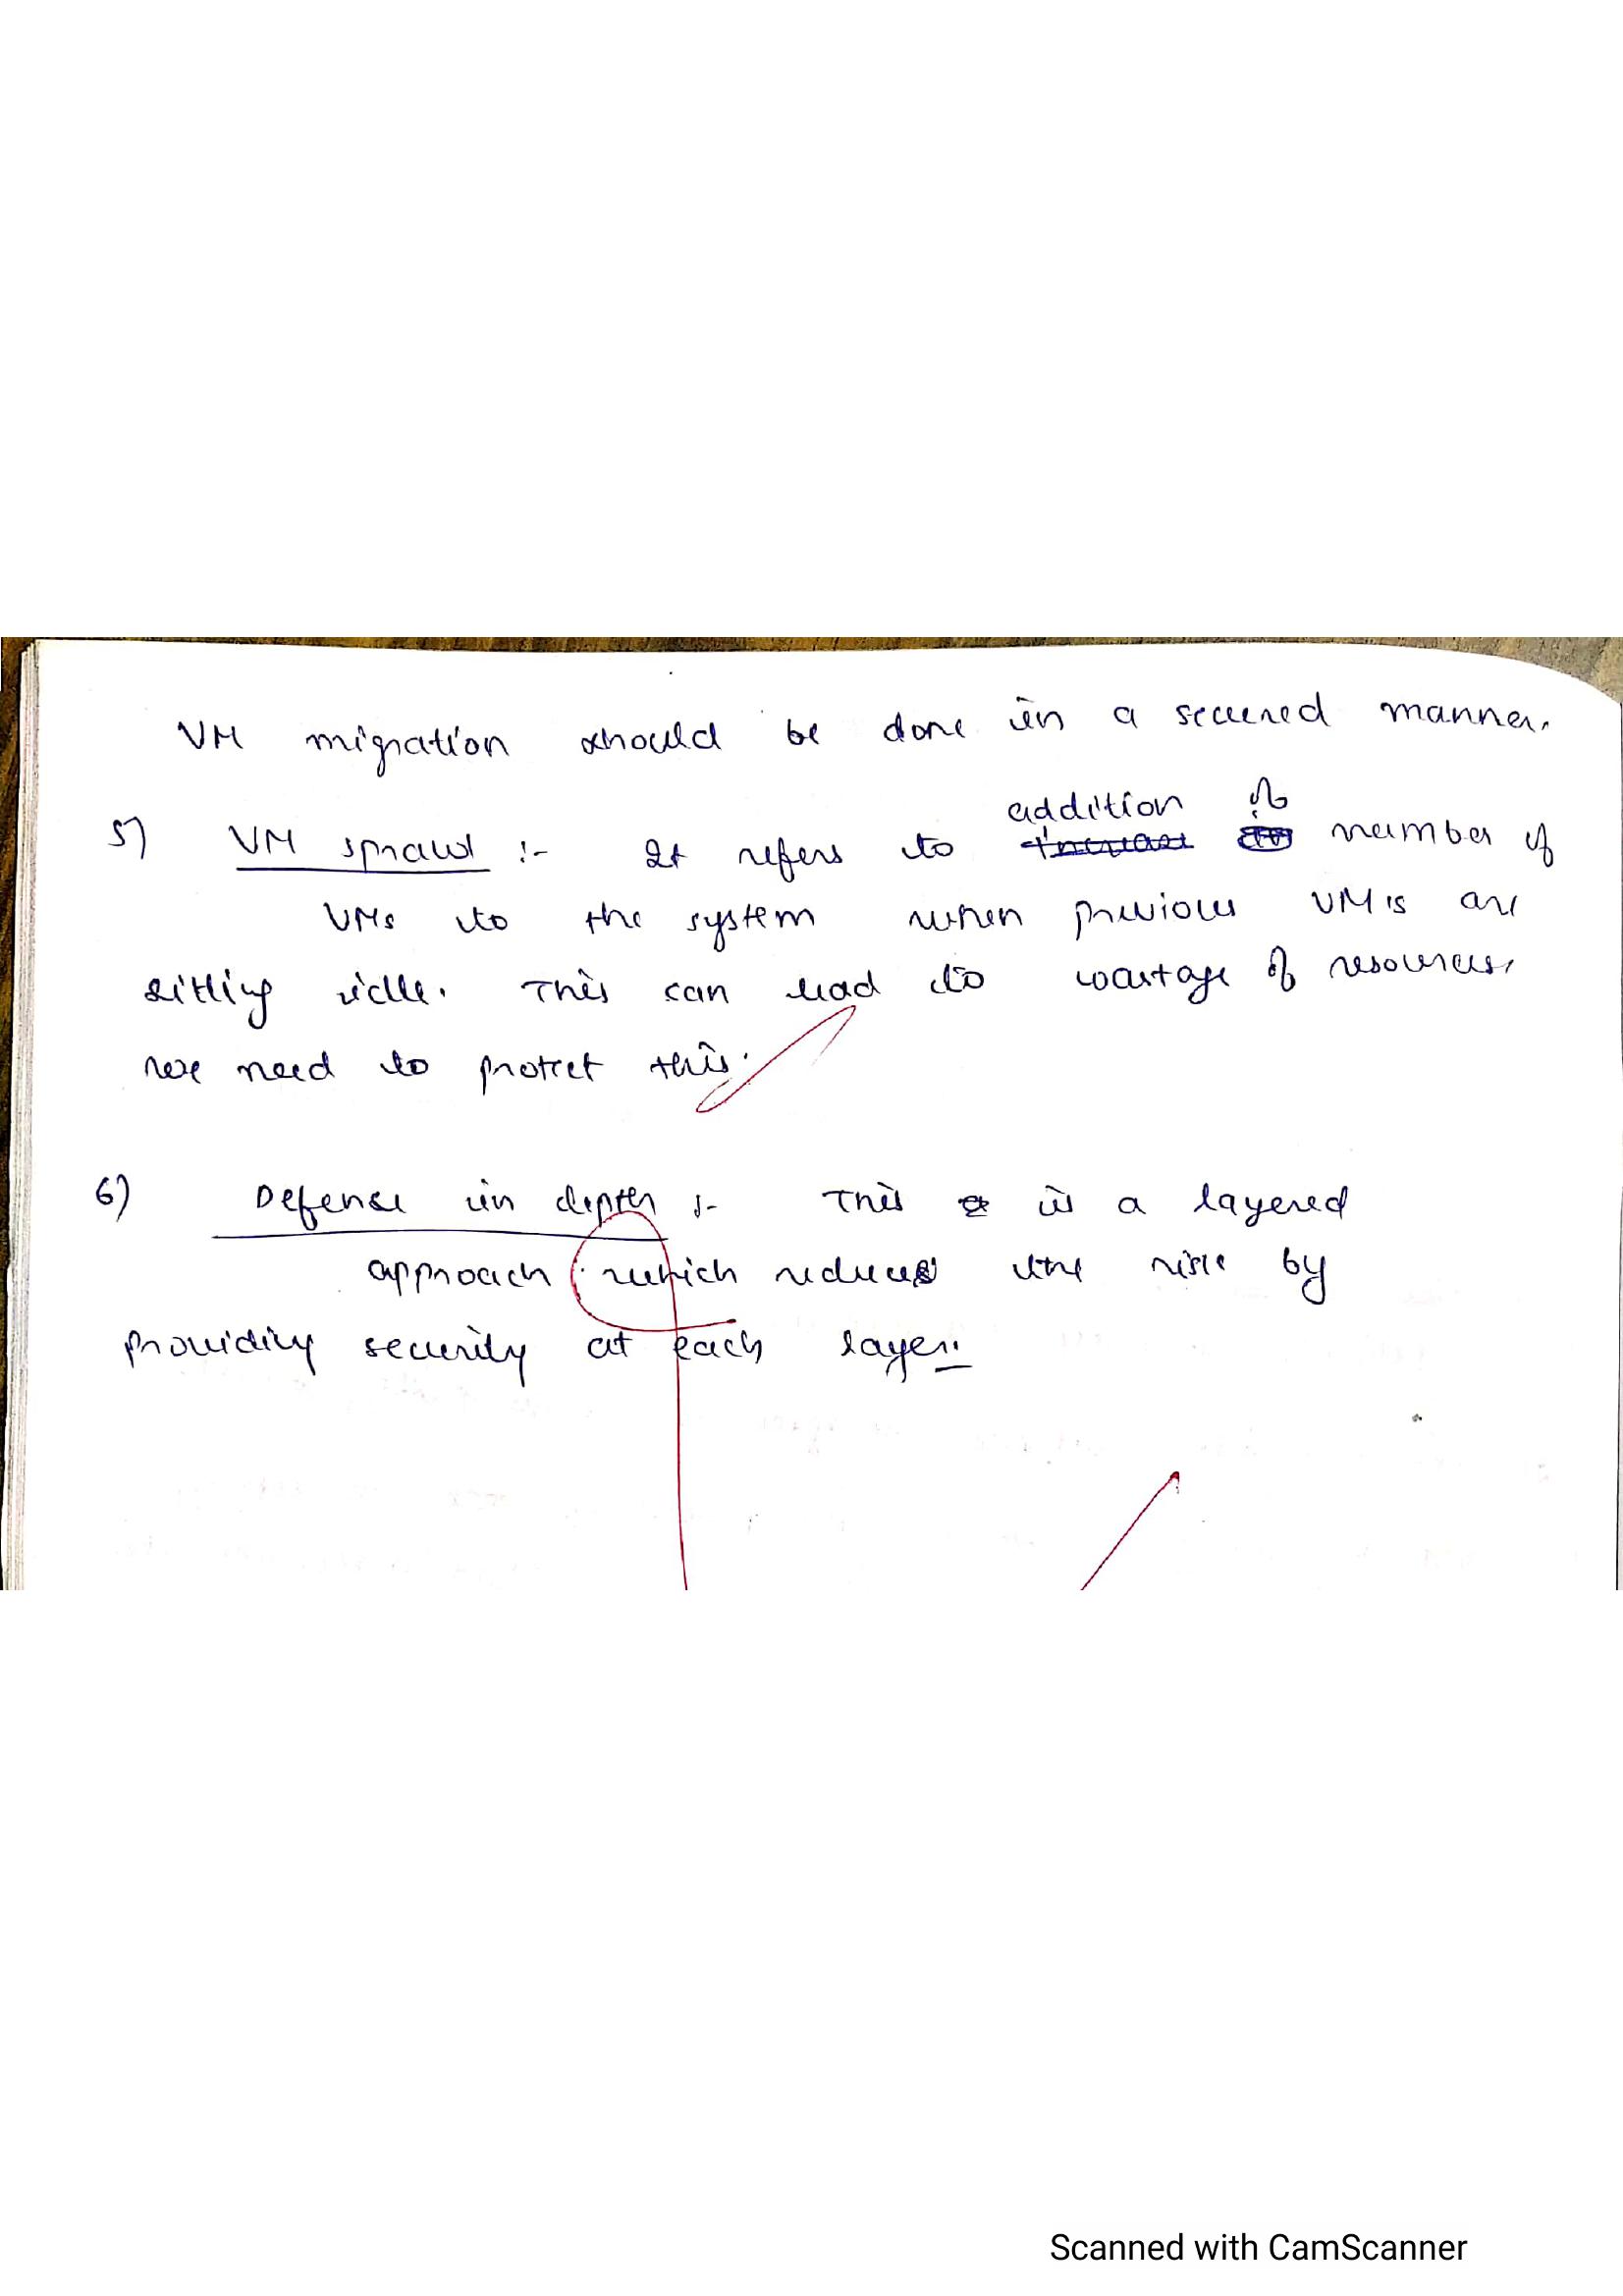 VM migration should be done in a secured manner.
addition of
5) VM sprawl :- It refers to increase number of
VMs to the system when previous VM's are
sitting idle. This can lead to wastage of resources.
we need to protect this.
6) Defense in depth :- This is a layered
approach which reduces the risk by
providing security at each layer.
Scanned with CamScanner